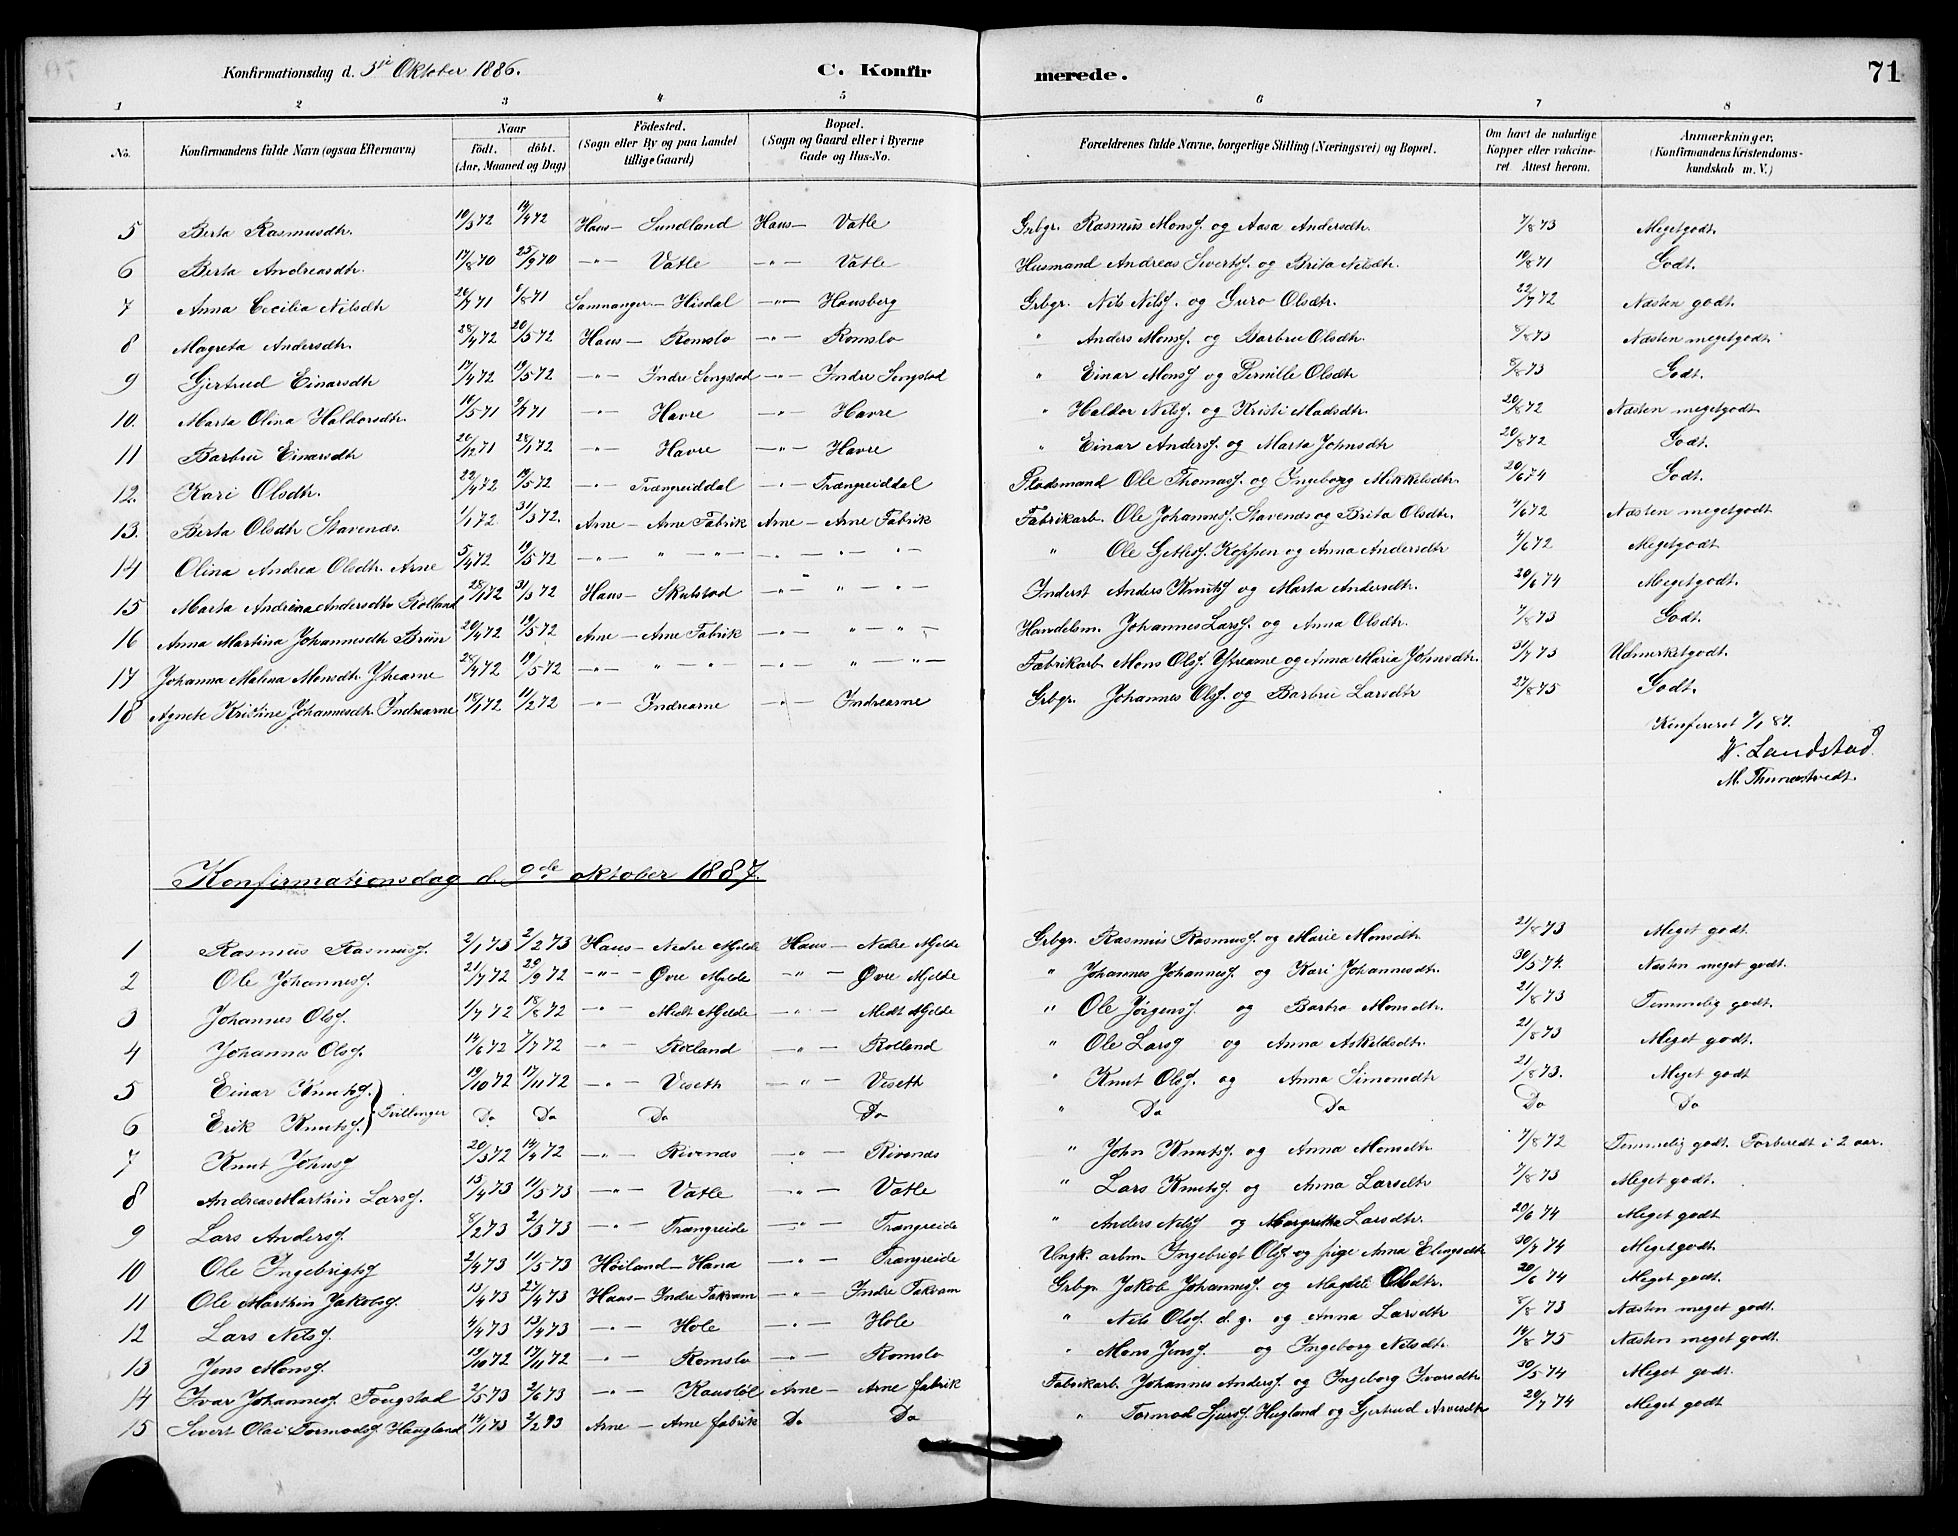 Konfirmationsdag d. 3die Oktober 1886. C. Konfirmerede. 71
1 2 3 4 5 6 7 8
No. Konfirmandens fulde Navn (ogsaa Efternavn) Naar födt. döbt. (Aar, Maaned og Dag) Födested. (Sogn eller By og paa Landet tillige Gaard) Bopæl. (Sogn og Gaard eller i Byerne Gade og Hus-No. Forældrenes fulde Navne, borgerlige Stilling (Næringsvei) og Bopæl. Om havt de naturlige Kopper eller vakcineret. Attest herom. Anmærkninger, (Konfirmandens Kristendomskundskab m. V.)
5 Berta Rasmusdtr. 10/3 72 14/4 72 Haus — Sundland Haus — Vatle Grbgr. Rasmus Monsf. og Aasa Andersdtr. 7/8 73 Megetgodt.
6 Berta Andreasdtr. 17/8 70 25/9 70 —"— Vatle —"— Vatle Husmand Andreas Sivertsf. og Brita Nilsdtr. 10/8 71 Godt.
7 Anna Cecilia Nilsdtr 26/7 71 6/8 71 Samnanger — Hisdal —"— Hausberg Grbgr. Nils Nilsf. og Guro Olsdtr. 22/7 72 Næsten godt.
8 Magreta Andersdtr. 28/4 72 20/5 72 Haus — Romslo —"— Romslo " Anders Monsf. og Barbru Olsdtr. 8/8 73 Næsten megetgodt.
9 Gjertrud Einarsdtr 17/4 72 19/5 72 —"— Indre Songstad —"— Indre Songstad " Einar Monsf og Pernille Olsdtr 8/8 73 Godt.
10. Marta Olina Haldorsdtr. 16/5 71 2/7 71 —"— Havre —"— Havre " Haldor Nilsf. og Kristi Madsdtr. 20/8 72 Næsten megetgodt
11 Barbru Einarsdtr 26/12 71 28/1 72 —"— Havre —"— Havre " Einar Andersf. og Marta Johnsdtr 20/8 72 Godt.
12. Kari Olsdtr. 22/4 72 19/5 72 —"— Trængreiddal —"— Trængreiddal Pladsmand Ole Thomasf. og Ingeborg Mikkelsdtr. 20/6 74 Godt.
13. Berta Olsdtr Stavenes. 1/1 72 31/3 72. Arne — Arne Fabrik Arne — Arne Fabrik Fabrikarb. Ole Johannesf. Stavenes og Brita Olsdtr. 4/6 72 Næsten megetgodt
14 Olina Andrea Olsdtr. Arne 5/4 72 19/5 72 —"— " —"— —"— " —"— " Ole Gjetlesf. Koppen og Anna Andersdtr 4/6 72 Megetgodt
15 Marta Andrina Andersdtr Rolland 28/1 72 31/3 72 Haus — Skulstad —"— " —"— Inderst Anders Knutsf og Marta Andersdtr. 20/6 74 Megetgodt.
16 Anna Martina Johannesdtr Bruu 20/4 72 19/5 72 Arne — Arne Fabrik —"— " —"— Handelsm. Johannes Larsf. og Anna Olsdtr. 7/8 73 Godt.
17 Johanna Malina Monsdtr. Ytrearne 28/4 72 19/5 72 —"— " —"— —"— " —"— Fabrikarb. Mons Olsf. Ytrearne og Anna Maria Johnsdtr. 31/7 73 Udmerketgodt.
18 Agnete Kristine Johannesdtr. Indrearne 18/1 72 11/2 72 —"— Indrearne —"— Indrearne Grbgr. Johannes Olsf. og Barbru Larsdtr 27/8 75 Godt.
Konfereret 9/1 87.
W. Landstad.
M. Thunestvedt.
Konfirmationsdag d. 9de oktober 1887.
1 Rasmus Rasmusf. 2/1 73 2/2 73 Haus — Nedre Mjelde Haus — Nedre Mjelde Grbgr. Rasmus Rasmusf. og Marie Monsdtr. 21/8 73 Meget godt.
2 Ole Johannesf. 21/7 72 29/9 72 —"— Øvre Mjelde —"— Øvre Mjelde " Johannes Johannesf. og Kari Johannesdtr. 30/5 74. Næsten meget godt.
3 Johannes Olsf. 1/7 72 18/8 72 —"— Midt Mjelde —"— Midt Mjelde " Ole Jørgensf. og Barbra Monsdtr. 21/8 73 Temmelig godt.
4 Johannes Olsf. 14/6 72 7/7 72 —"— Rolland —"— Rolland " Ole Larsf og Anna Askeldsdtr. 21/8 73 Meget godt.
5 Einar Knutsf. } Tvillinger 19/10 72 17/11 72 —"— Viseth —"— Viseth " Knut Olsf. og Anna Simonsdtr 21/8 73. Meget godt
6 Erik Knutsf. Do Do Do Do " Do Do Do Do
7 Knut Johnsf 20/3 72 14/4 72 —"— Rivenes —"— Rivenes " John Knutsf. og Anna Monsdtr. 7/8 72 Temmelig godt. Forberedt i 2 aar.
8 Andreas Marthin Larsf. 13/4 73 11/5 73 —"— Vatle —"— Vatle " Lars Knutsf. og Anna Larsdtr 7/8 73 Meget godt.
9 Lars Andersf. 8/2 73 2/3 73 —"— Trængreide —"— Trængreide " Anders Nilsf og Margretha Larsdtr. 20/6 74 Meget godt
10 Ole Ingebrigtsf 2/4 73 11/5 73 Høiland — Hana —"— Trængreide Ungk. arbm. Ingebrigt Olsf. og pige Anna Elingsdtr 30/7 74 Megetgodt.
11 Ole Marthin Jakobsf. 13/4 73 27/4 73 Haus — Indre Takvam —"— Indre Takvam Grbgr. Jakob Johannesf. og Magdeli Olsdtr. 20/6 74 Meget godt.
12 Lars Nilsf. 4/4 73 13/4 73 —"— Hole —"— Hole " Nils Olsf. d. y. og Anna Larsdtr 8/8 73 Næsten meget godt.
13 Jens Monsf. 19/10 72 17/11 72 —"— Romslo —"— Romslo " Mons Jensf. og Ingeborg Nilsdtr. 14/8 75 Næsten meget godt.
14 Ivar Johannesf. Tongstad 2/5 73 2/6 73 —"— Kaustøl Arne — Arne fabrik Fabrikarb. Johannes Andersf. og Ingeborg Ivarsdtr 30/5 74 Meget godt.
15 Sivert Olai Tormodsf. Haugland 14/1 73 2/2 93 Arne — Arne fabrik Do Do " Tormod Sjursf. Hugland og Gjertrud Arvesdtr 20/7 74 Meget godt